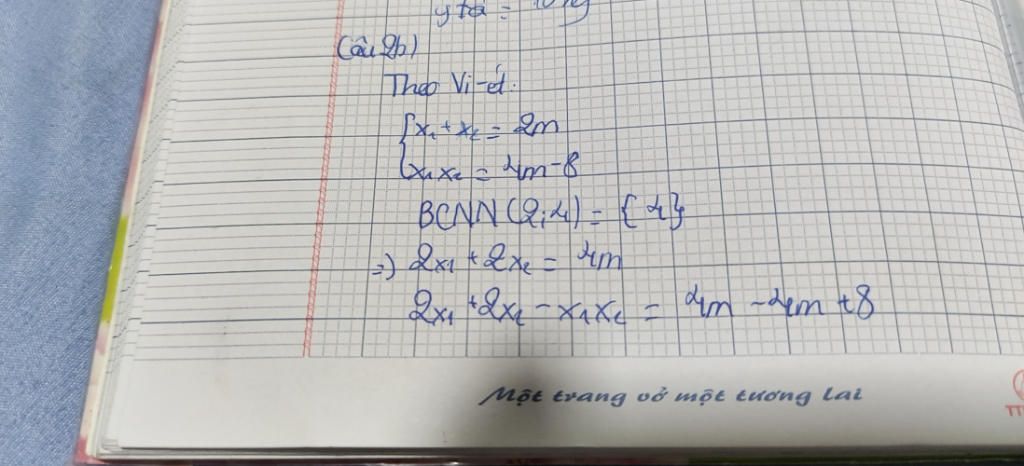 yta = 10
Câu 2b)
Theo Vi-ét:
x₁ + x₂ = 2m
x₁x₂ = 4m - 8
BCNN(2;4) = {4}
=) 2x₁ + 2x₂ = 4m
2x₁ + 2x₂ - x₁x₂ = 4m - 4m + 8
Một trang vở một tương lai